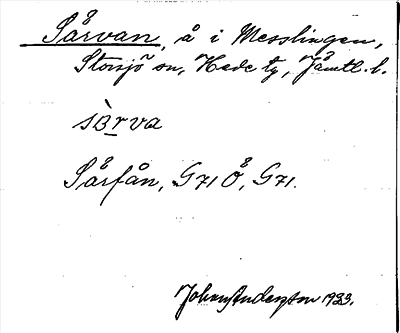 Särvan, å i Messlingen,
Storsjö sn, Hede tg, Jämtl. l.
sàrva
Sårfån, G71 Ö, G71.
John Anderzon 1933.